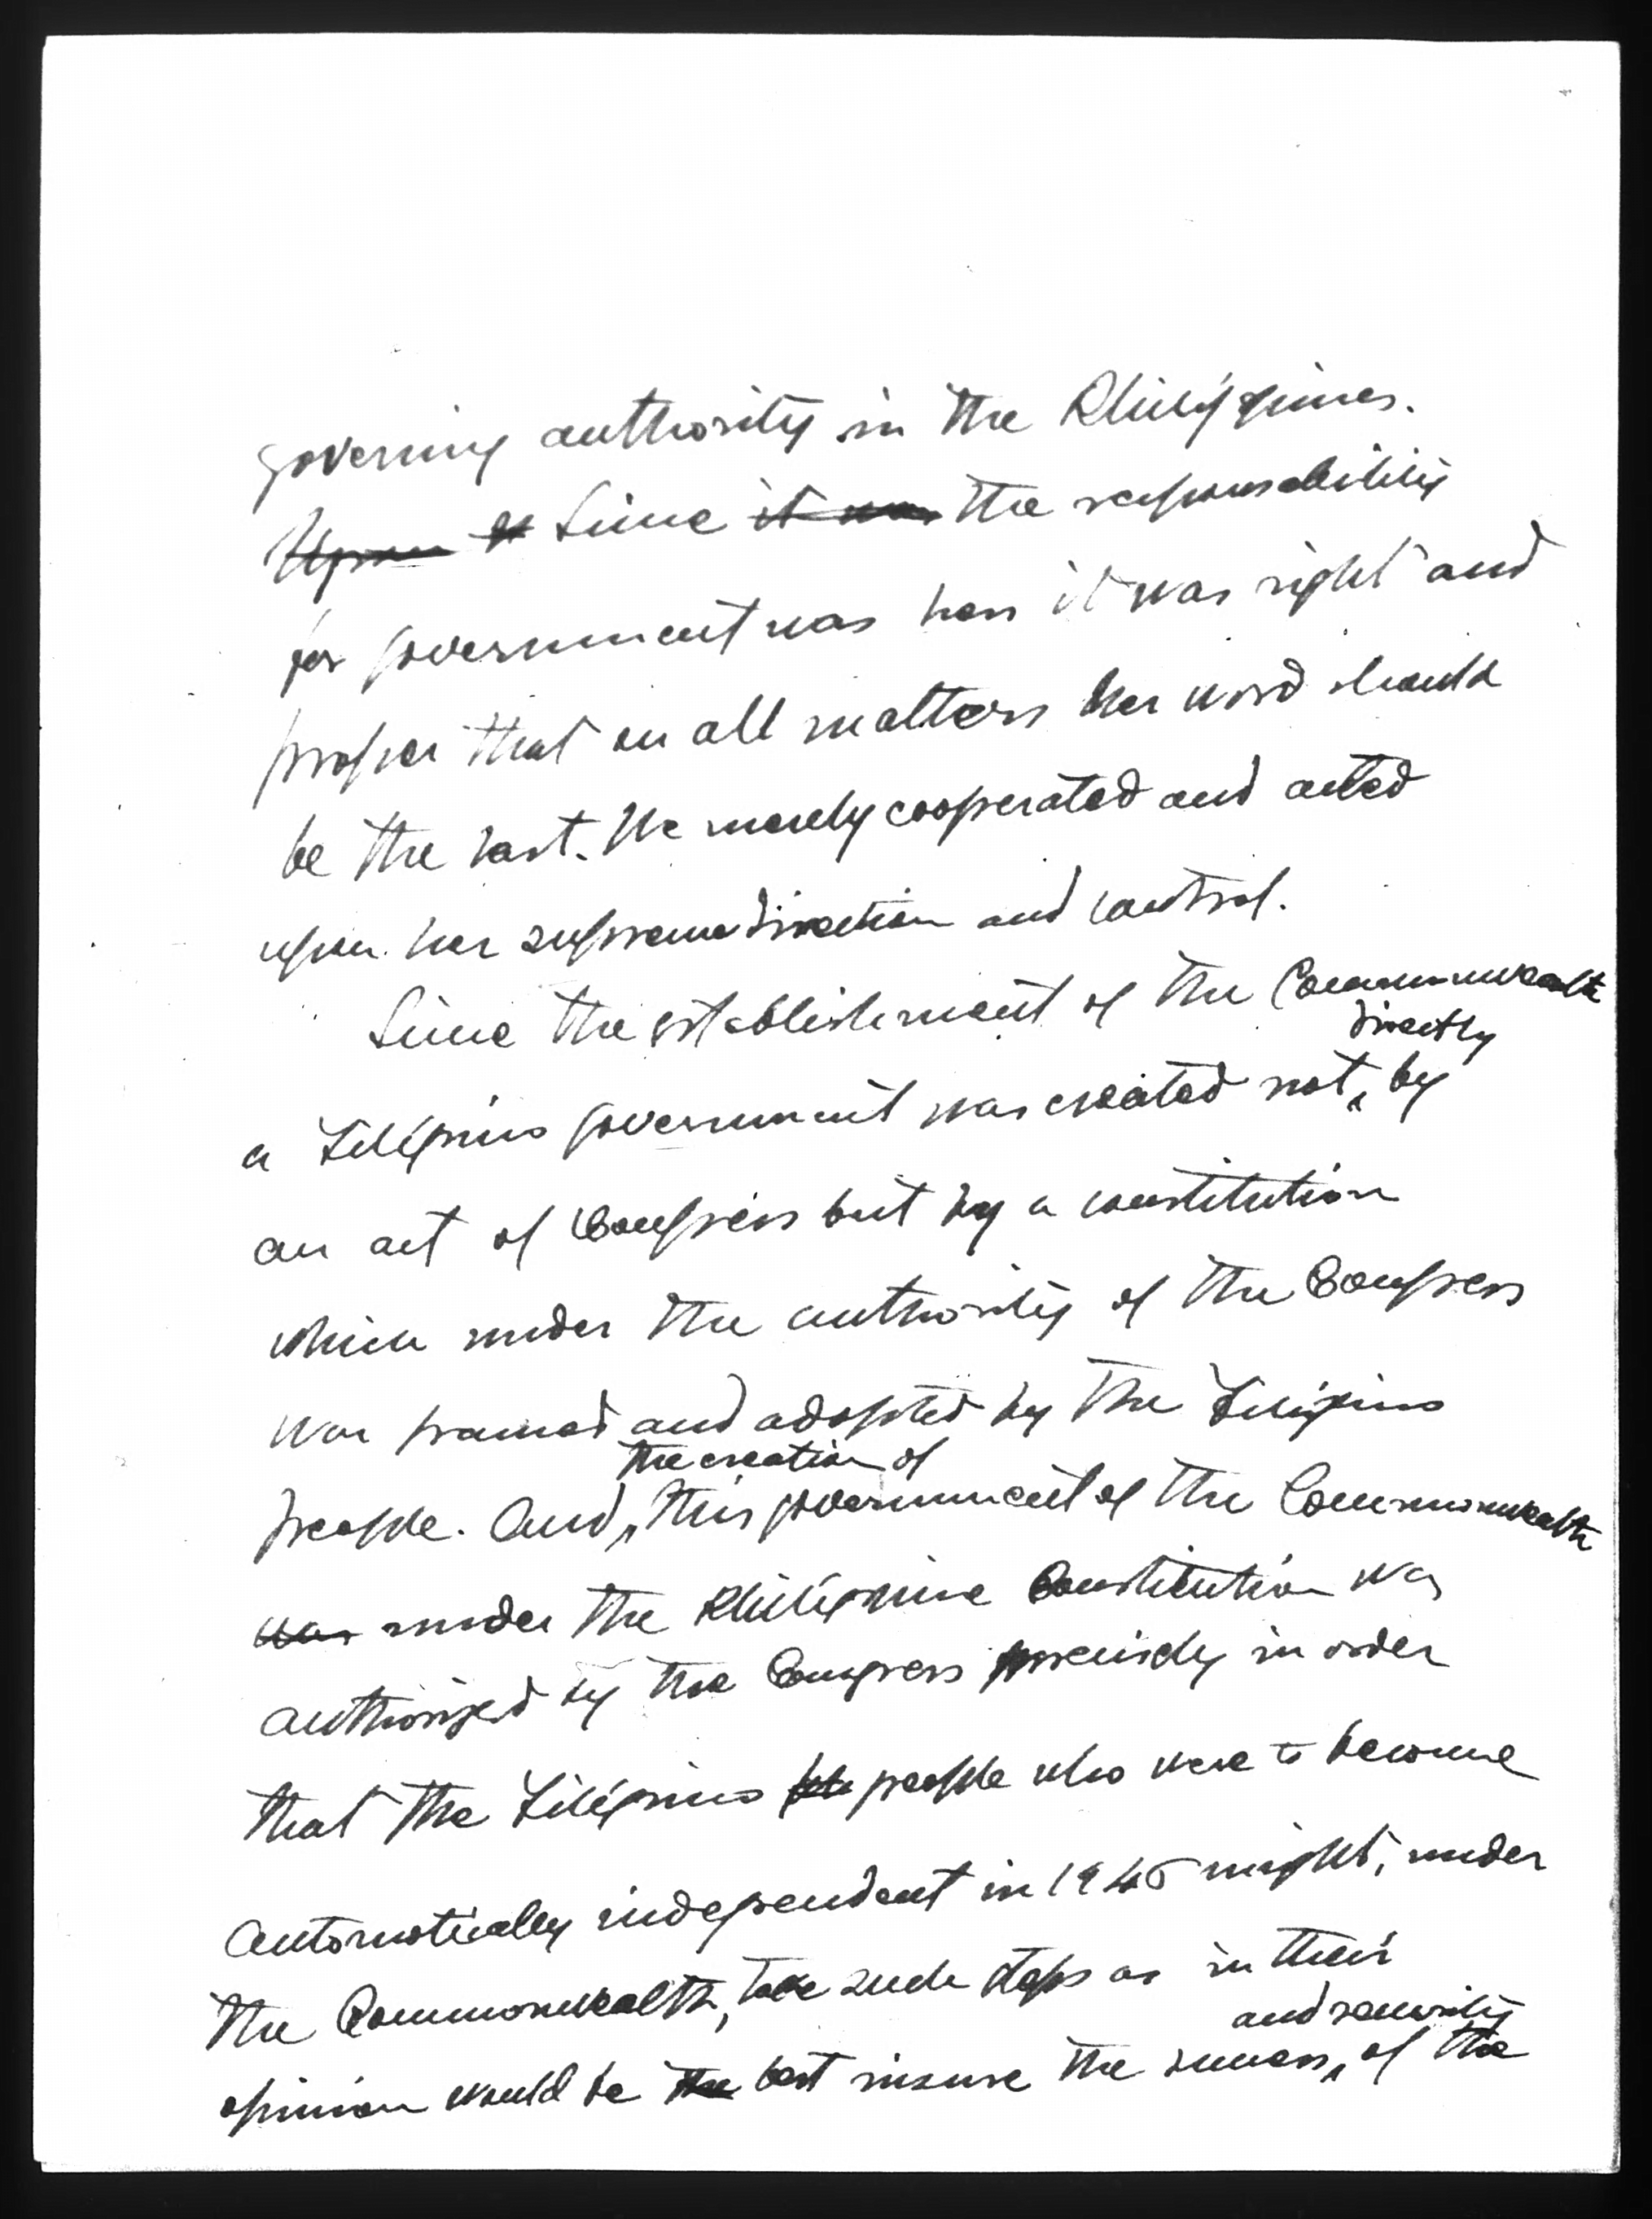 governing authority in the Philippines.
Upon Since it was the responsability
for government was hers it was right and
proper that on all matters her word should
be the last. We merely cooperated and acted
upon her supreme direction and control.
Since the establishment of the Commonwealth
directly
a Filipino government was created not by
an act of Congress but by a constitution
which under the authority of the Congress
was framed and adopted by the Filipino
the creation of
people. And, this government of the Commonwealth
was under the Philippine Constitution was
authorized by the Congress precisely in order
that the Filipino people who were to become
automatically independent in 1946 might, under
the Commonwealth, take such steps as in their
and security
opinion would be the best insure the success of the